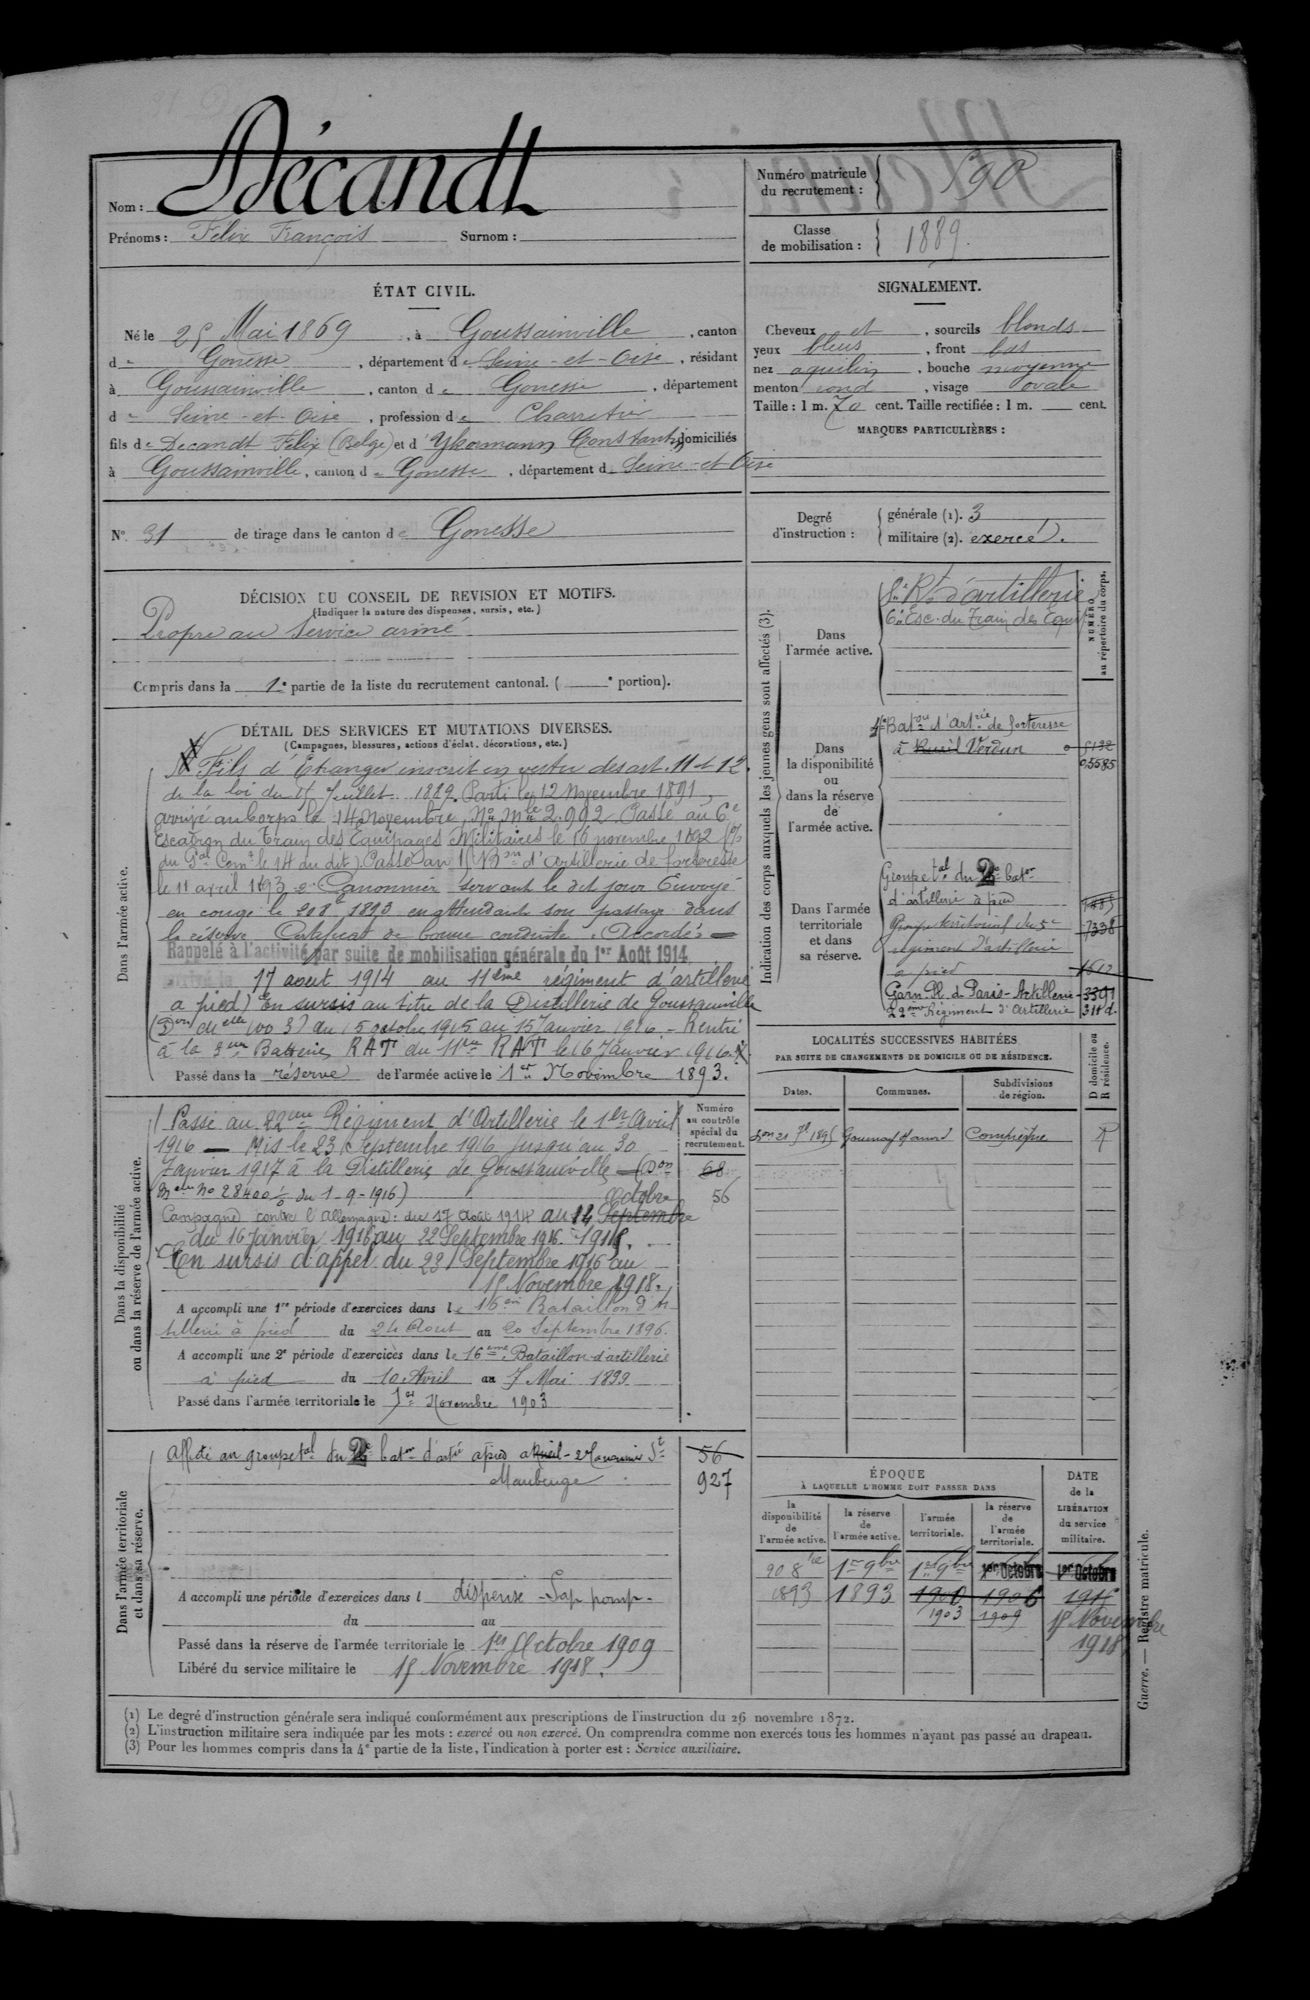 Nom : Décandt
Prénoms : Felix François Surnom :
Numéro matricule
du recrutement : 590
Classe
de mobilisation : 1889.
ÉTAT CIVIL.
Né le 25 Mai 1869, à Goussainville, canton
de Gonesse, département de Seine-et-Oise, résidant
à Goussainville, canton de Gonesse, département
de Seine-et-Oise, profession de Charretier
fils de Decandt Felix (Belge) et d' Constant domiciliés
à Goussainville, canton de Gonesse, département de Seine-et-Oise
SIGNALEMENT.
Cheveux et, sourcils blonds
yeux bleus, front bas
nez aquilin, bouche moyenne
menton rond, visage ovale
Taille : 1 m. 70 cent. Taille rectifiée : 1 m. cent.
MARQUES PARTICULIÈRES :
N° 31 de tirage dans le canton de Gonesse
Degré
d'instruction :
générale (1). 3
militaire (2). exercé.
DÉCISION DU CONSEIL DE REVISION ET MOTIFS.
(Indiquer la nature des dispenses, sursis, etc.)
Propre au Service armé
Compris dans la 1e partie de la liste du recrutement cantonal. ( e portion).
DÉTAIL DES SERVICES ET MUTATIONS DIVERSES.
(Campagnes, blessures, actions d'éclat, décorations, etc.)
Dans l'armée active.
Fils d'Etranger inscrit en vertu des art. 11 et 12
de la loi du 15 Juillet 1889. Parti le 12 Novembre 1891,
arrivé au Corps le 14 Novembre, No mle 2.992. Passé au 6e
Escadron du Train des Equipages Militaires le 16 novembre 1892
du Gal Comt le 14 du dit). Passé au Bon d'artillerie de forteresse
le 11 avril 1893 2e Canonnier Servant le dit jour Envoyé
en congé le 20 8bre 1893 en attendant son passage dans
la réserve. Certificat de bonne conduite "Accordé"
Rappelé à l'activité par suite de mobilisation générale du 1er Août 1914,
arrivé le 17 aout 1914 au 11ème régiment d'artillerie
a pied) En sursis au titre de la Distillerie de Goussainville
du 15 octobre 1915 au 15 Janvier 1916 - Rentré
à la 3eme Batterie RAT du 11eme RAT le 16 Janvier 1916.
Passé dans la réserve de l'armée active le 1er Novembre 1893.
Dans la disponibilité
ou dans la réserve de l'armée active.
Numéro
au contrôle
spécial du
recrutement.
Passé au 22eme Régiment d'Artillerie le 1er Avril
1916 — Mis le 23 Septembre 1916 jusqu'au 30
Janvier 1917 à la Distillerie de Goussainville — (Don
Melle No 28400 1/0 du 1-9-1916)
68
56
octobre
Campagne contre l'Allemagne : du 17 Août 1914 au 14 Septembre
du 16 Janvier 1916 au 22 Septembre 1916. 1915.
En sursis d'appel du 23 Septembre 1916 au
15 Novembre 1918.
A accompli une 1re période d'exercices dans le 16em Bataillon d'Ar
tillerie à pied du 24 Aout au 20 Septembre 1896.
A accompli une 2e période d'exercices dans le 16eme Bataillon d'artillerie
à pied du 10 Avril au 7 Mai 1899
Passé dans l'armée territoriale le 1er Novembre 1903
Dans l'armée territoriale
et dans sa réserve.
Affecté au groupe tal du 2e baton d'artie à pied a Rueil
Maubeuge
56
927
A accompli une période d'exercices dans l dispensé - Sap. pomp.
du au
Passé dans la réserve de l'armée territoriale le 1er Octobre 1909
Libéré du service militaire le 15 Novembre 1918.
Indication des corps auxquels les jeunes gens sont affectés (3).
NUMÉRO
au répertoire du corps.
Dans
l'armée active.
Rt d'artillerie
6e Esc. du Train des Equip
Dans
la disponibilité
ou
dans la réserve
de
l'armée active.
Baton d'Artrie de forteresse
à Rueil Verdun
5132
5585
Dans l'armée
territoriale
et dans
sa réserve.
Groupe tal du 2e baton
d'artillerie à pied
Groupe territorial du 5e
régiment d'artillerie
a pied
7338
Garn. Pl. de Paris - Artillerie 3391
22ème Régiment d'Artillerie
LOCALITÉS SUCCESSIVES HABITÉES
PAR SUITE DE CHANGEMENTS DE DOMICILE OU DE RÉSIDENCE.
D domicile ou
R résidence.
Dates. Communes. Subdivisions
de région.
Compiègne R
ÉPOQUE
À LAQUELLE L'HOMME DOIT PASSER DANS
la
disponibilité
de
l'armée active.
la réserve
de
l'armée active.
l'armée
territoriale.
la réserve
de
l'armée
territoriale.
DATE
de la
LIBÉRATION
du service
militaire.
20 8bre 1er 9bre 1er 9bre 1er Octobre 1er Octobre
1893 1893 1900 1906 1915
1903 1909 15 Novembre
1918
Guerre. — Registre matricule.
(1) Le degré d'instruction générale sera indiqué conformément aux prescriptions de l'instruction du 26 novembre 1872.
(2) L'instruction militaire sera indiquée par les mots : exercé ou non exercé. On comprendra comme non exercés tous les hommes n'ayant pas passé au drapeau.
(3) Pour les hommes compris dans la 4e partie de la liste, l'indication à porter est : Service auxiliaire.